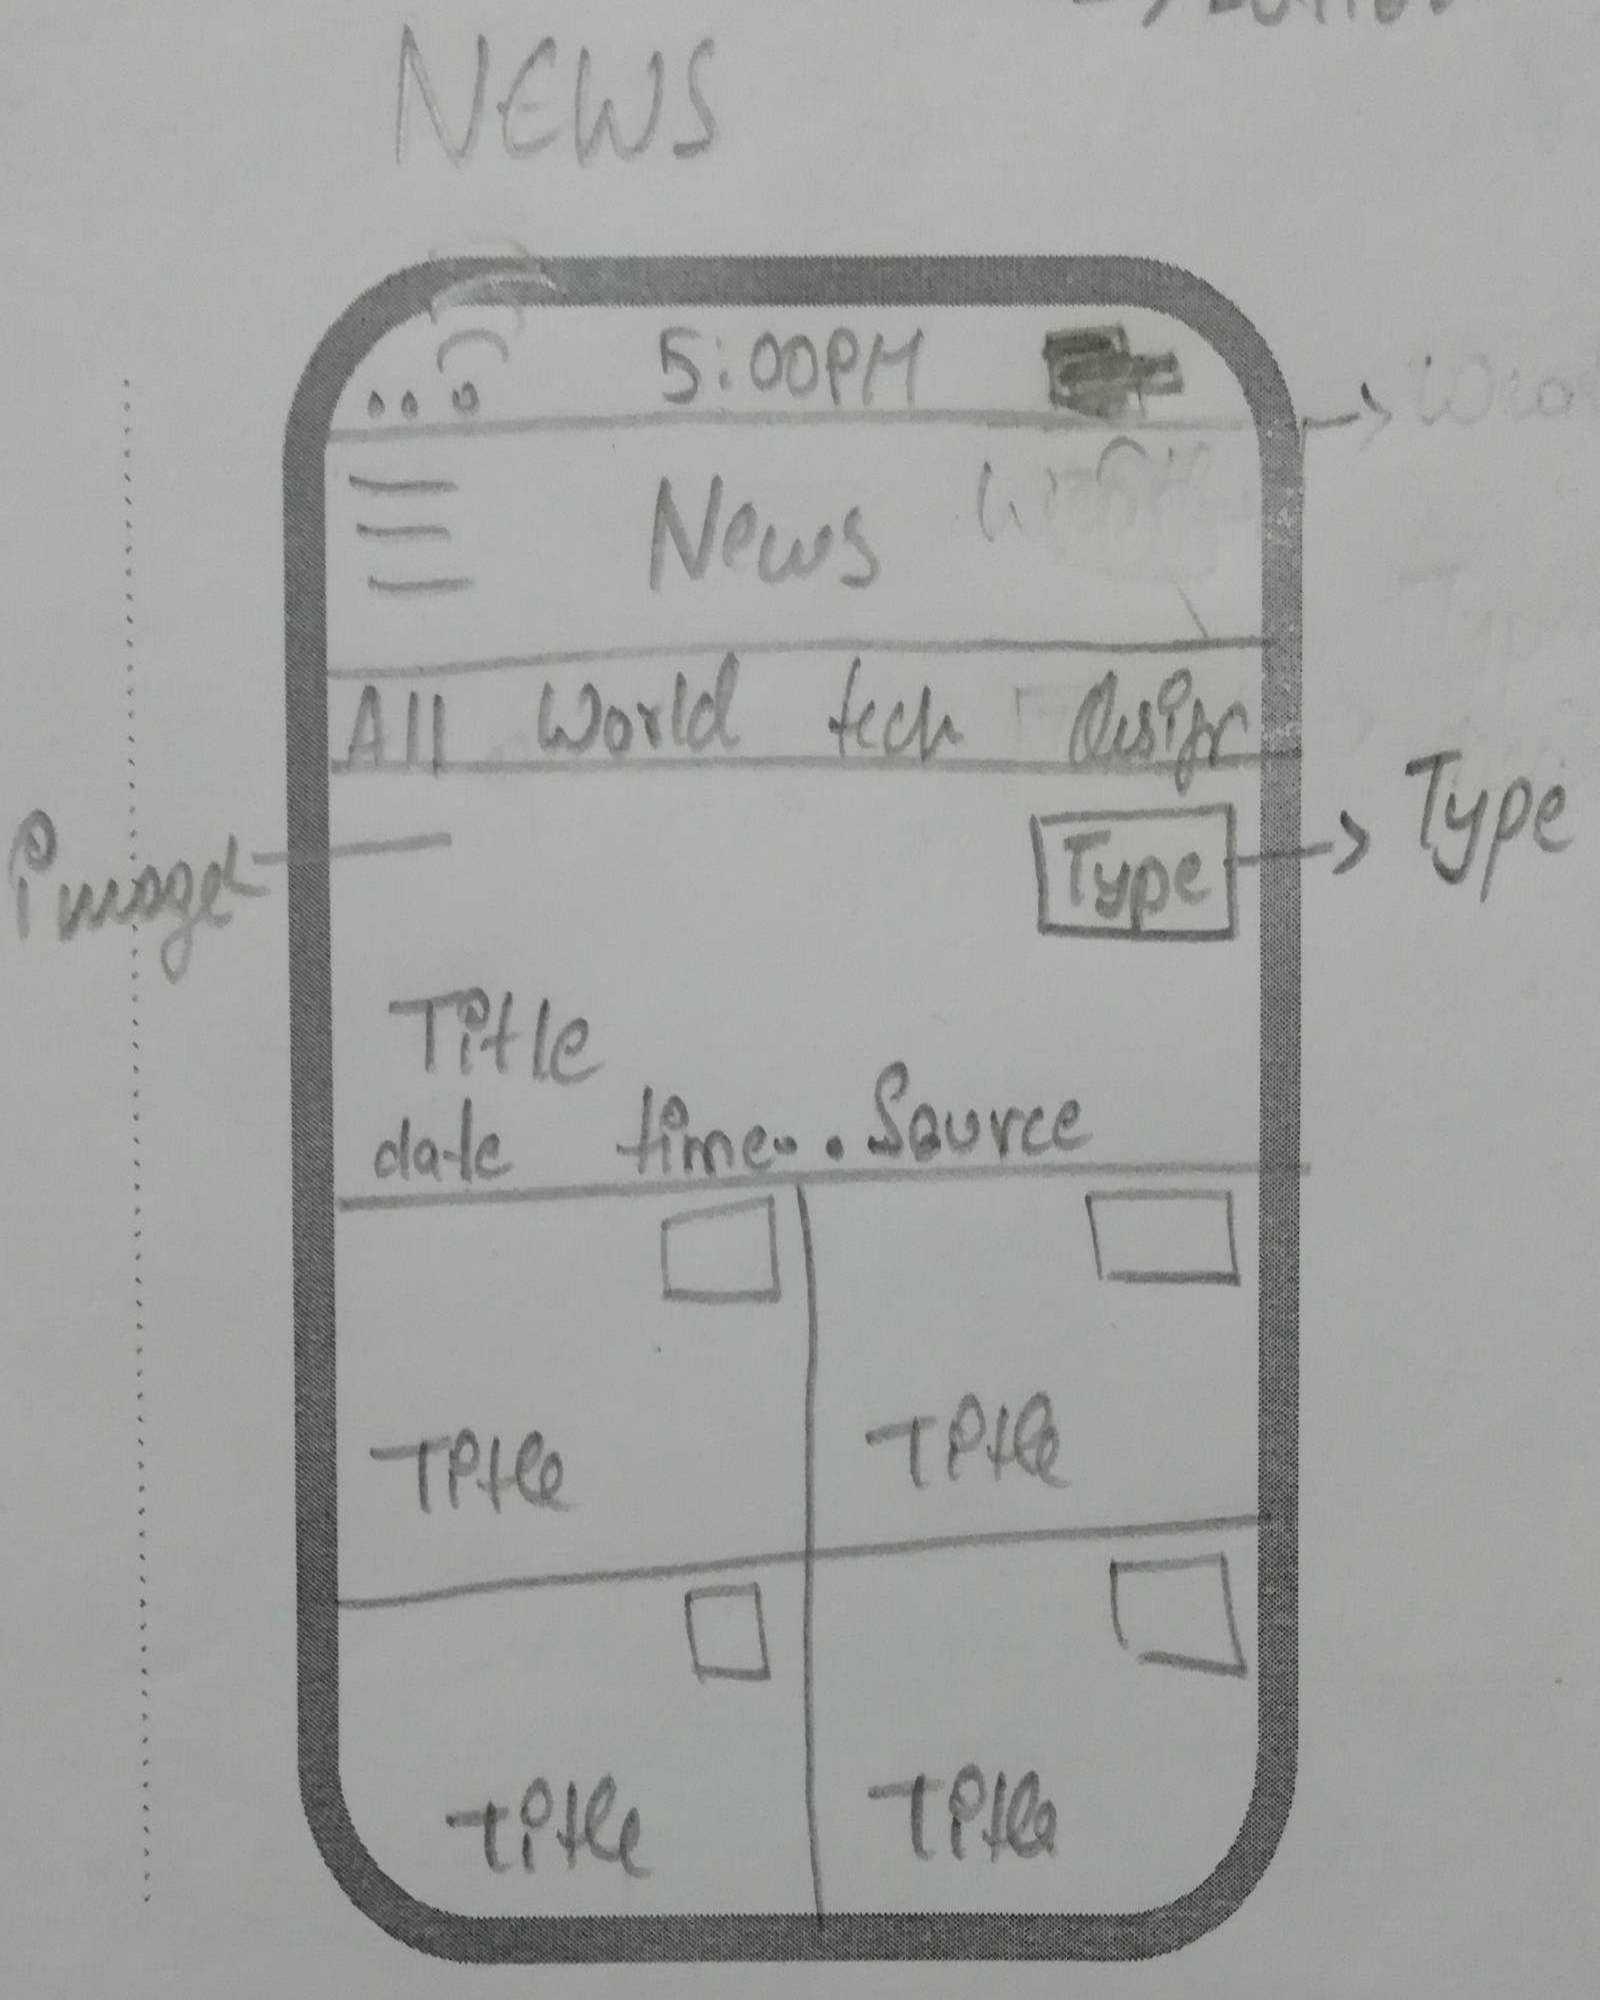 NEWS
5:00PM
News
All World tech design
Type
Type
image
Title
date time.. Source
Title
Title
Title
Title